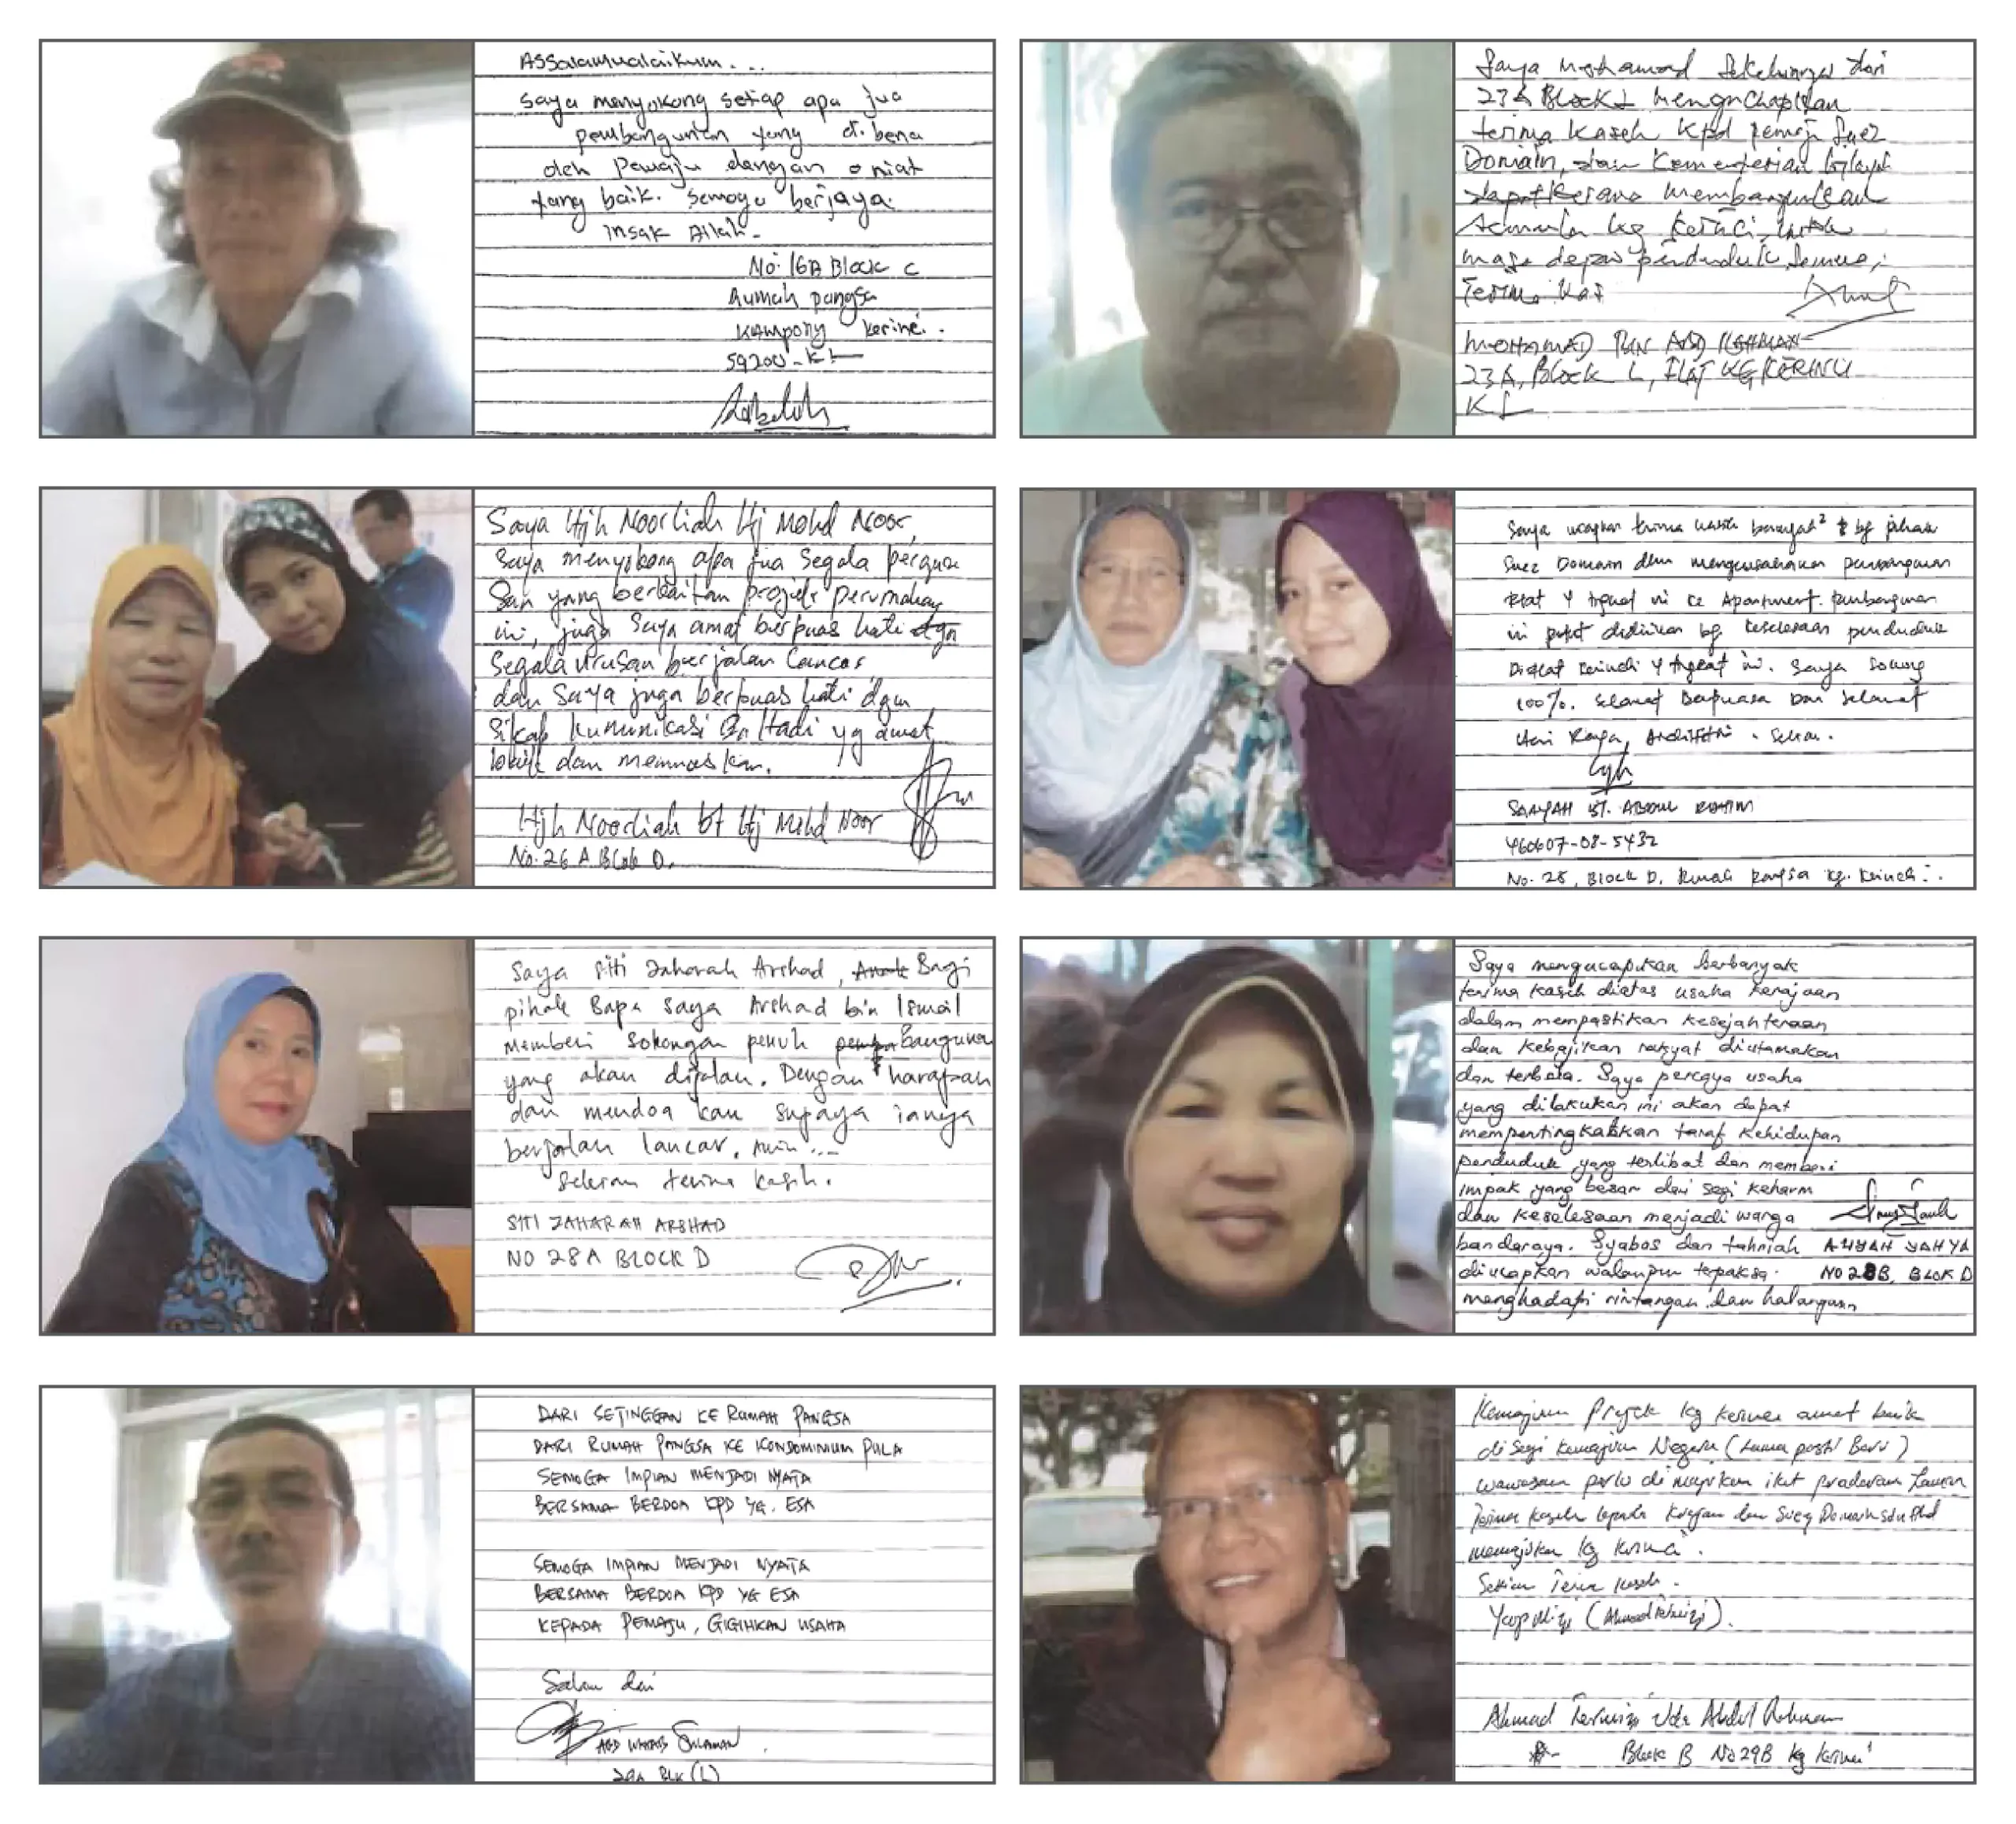 Assalamualaikum...
saya menyokong setiap apa jua
pembangunan yang di bena
oleh Pemaju dengan niat
yang baik. Semoga berjaya.
insak Allah.
No: 16A Block C
Rumah pangsa
Kampong Kerinci.
59200-KL
Saya Mohamad Sekeluarga dari
23A Block L Menguchapkan
terima Kaseh Kpd pemaju Suez
Domain, dan Kementerian Wilayah
Kerana membangunkan
Semula kg Kerinci, untuk
masa depan penduduk Semua,
Terima Kasi
MOHAMAD BIN ABD RAHMAN
23A, BLOCK L, FLAT KG KERINCI
KL
Saya Hjh Noorliah Hj Mohd Noor,
Saya menyokong apa jua Segala pergura
San yang berkaitan projek perumahan
ini, juga Saya amat berpuas hati dgn
Segala Urusan berjalan Lancar
dan Saya juga berpuas hati dgn
Sikap Kumunikasi En Hadi yg amat
baik dan memuaskan.
Hjh Noorliah bt Hj Mohd Noor
No. 26 A Blok D.
Saya ucapkan terima kasih banyak² bg pihak
Suez Domain dlm mengusahakan pembangunan
flat 4 tigkat ni ke Apartment. Pembangunan
ini patut didirikan bg. keselesaan penduduk
Diflat Kerinchi 4 tigkat ini. Saya Sokong
100%. Selamat Berpuasa Dan Selamat
Hari Raya, Aidilfitri. Sekian.
BT. ABDUL RAHIM
460607-08-5432
No. 28, Block D, Rumah Pangsa Kg. Kerinchi.
Saya Siti Zaharah Arshad, Bagi
pihak Bapa saya Arshad bin Ismail
Memberi Sokongan penuh Bangunan
yang akan dijalan. Dengan harapan
dan mendoa kan supaya ianya
berjalan lancar, Amin...
Sekian terima kasih.
SITI ZAHARAH ARSHAD
NO 28A BLOCK D
Saya mengucapkan berbanyak
terima kasih diatas usaha kerajaan
dalam mempastikan kesejahteraan
dan kebajikan rakyat diutamakan
dan terbela. Saya percaya usaha
yang dilakukan ini akan dapat
mempertingkatkan taraf kehidupan
penduduk yang terlibat dan memberi
impak yang besar dari segi keharm
dan keselesaan menjadi warga
bandaraya. Syabas dan tahniah
diucapkan walaupun terpaksa
menghadapi rintangan dan halangan
YAHYA
NO 28B, BLOK D
DARI SETINGGAN KE RUMAH PANGSA
DARI RUMAH PANGSA KE KONDOMINIUM PULA
SEMOGA IMPIAN MENJADI NYATA
BERSAMA BERDOA KPD YG. ESA
SEMOGA IMPIAN MENJADI NYATA
BERSAMA BERDOA KPD YG ESA
KEPADA PEMAJU, GIGIHKAN USAHA
Salam dari
ABD WAHAB SULAIMAN
29A BLK (L)
Kemajuan Projek kg kerinci amat baik
di Segi kemajuan Negara (Lama pasti Baru)
wawasan perlu di majukan ikut peredaran Zaman
Terima Kaseh kepada Kerajaan dan Suez Domain Sdn Bhd
memajukan kg kerinci.
Sekian Terima Kaseh.
(Ahmad Termizi).
Ahmad Termizi Uda Abdul Rahman
Block B No 29B kg kerinci